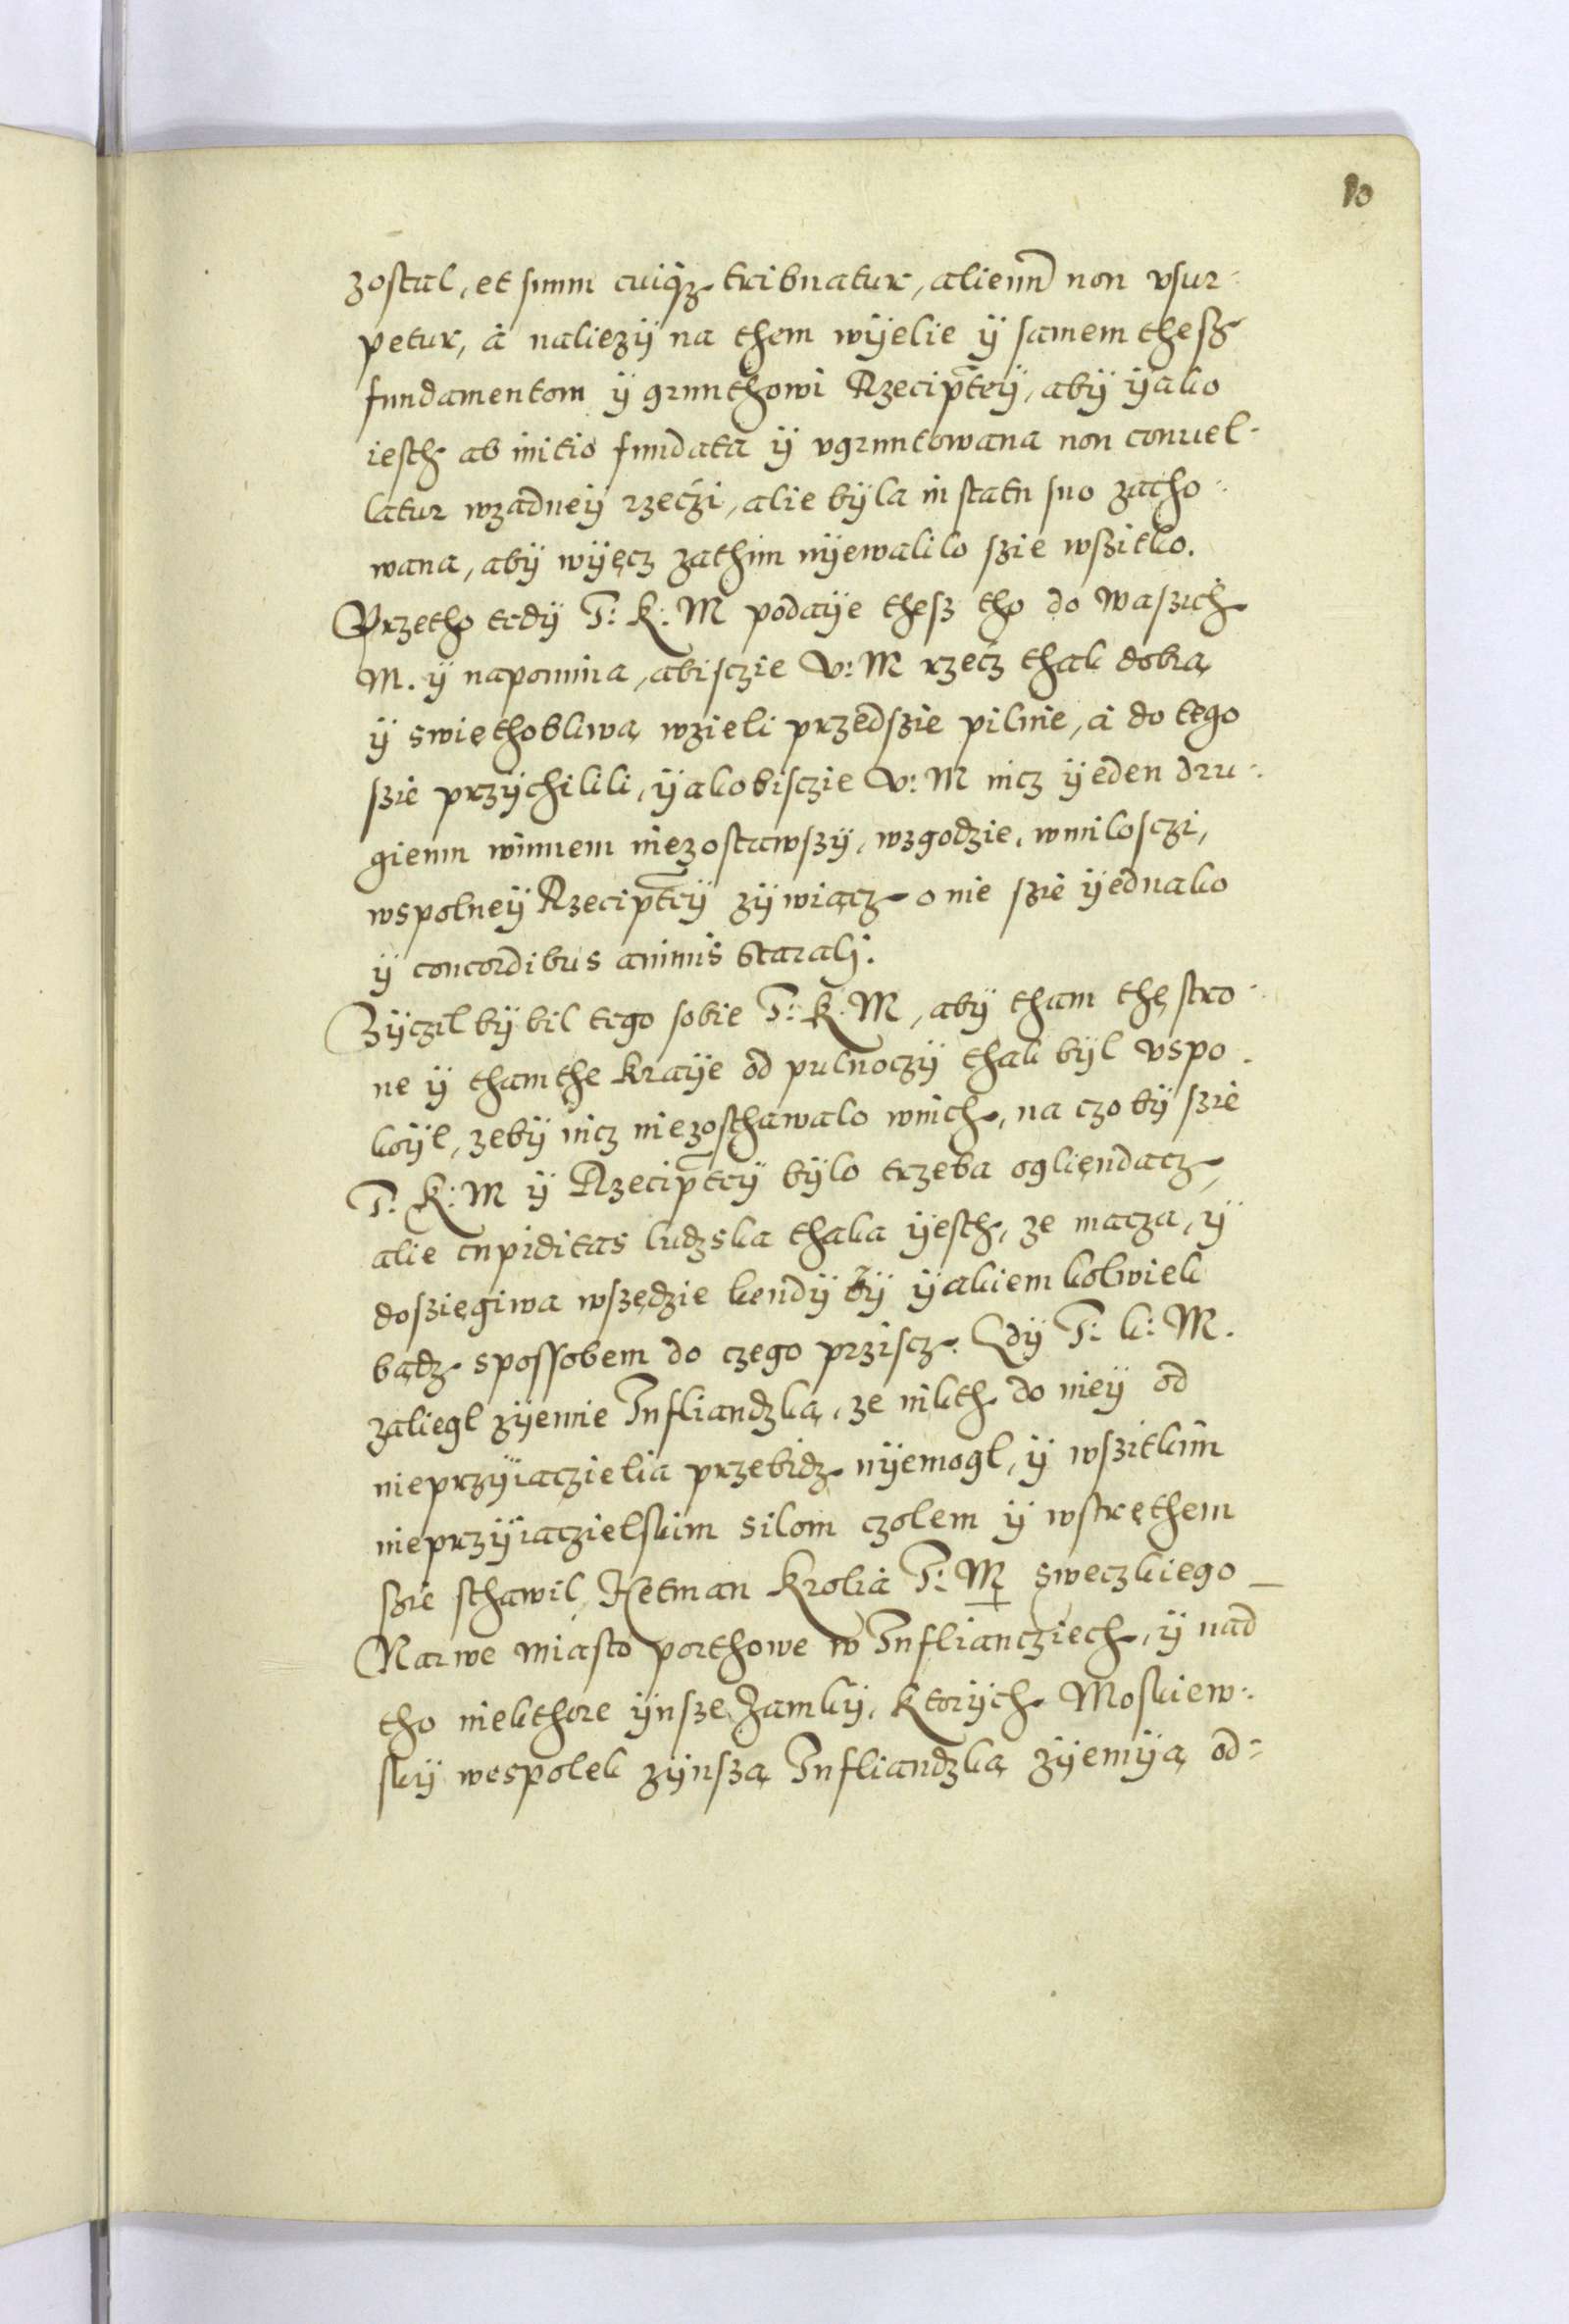 10
zostal, et suum cuiqz tribuatur, alienū non vsur-
petur, à naliezÿ na them wÿelie ÿ samem thesz
fundamentom ÿ grunthowi Rzeciptēÿ, abÿ ÿako
iesth ab initio fundata ÿ vgruntowana non conuel-
latur wzadneÿ rzeczi, alie bÿla in statu suo zacho-
wana, abÿ wÿęcz zathim nÿewalilo szie wszitko.
Przetho tedÿ J: K: M podaÿe thesz tho do Waszich
M. ÿ napomina, abisczie V: M rzecz thak dobrą
ÿ swięthobliwą wzieli przedszie pilnie, à do tego
szie przÿchilili, ÿakobisczie V: M nicz ÿeden dru-
giemu winnem niezostawszÿ, wzgodzie, wmilosczi,
wspolneÿ Rzeciptēÿ zÿwiącz o nie szie ÿednako
ÿ concordibus animis starali.
Zÿczil bÿ bil tego sobie J: K: M, abÿ tham thę stro-
ne ÿ tham the kraÿe od pulnoczÿ thak bÿl vspo-
koÿl, zebÿ nicz niezosthawalo wnich, na czo bÿ szie
J: K: M ÿ Rzeciptēÿ bÿlo trzeba ogliendacz,
alie cupiditas ludzska thaka ÿesth, ze macza, ÿ
dosziegiwa wszędzie kendÿ bÿ ÿakiem kolwiek
bądz spossobem do czego prziscz. Gdÿ J: k: M.
zaliegl zÿemie Infliandzką, ze nikth do nieÿ od
nieprzÿiaczielia przebidz nÿemogl, ÿ wszitkim
nieprzÿiaczielskim silom czolem ÿ wstręthem
szie sthawil, Hetman Krolia J: M sweczkiego
Narwe miasto porthowe w Inflianczięch, ÿ nad
tho niekthore ÿnsze Zamkÿ, ktorÿch Moskiew-
skÿ wespolek zÿnszą Infliandzką zÿemÿą od-